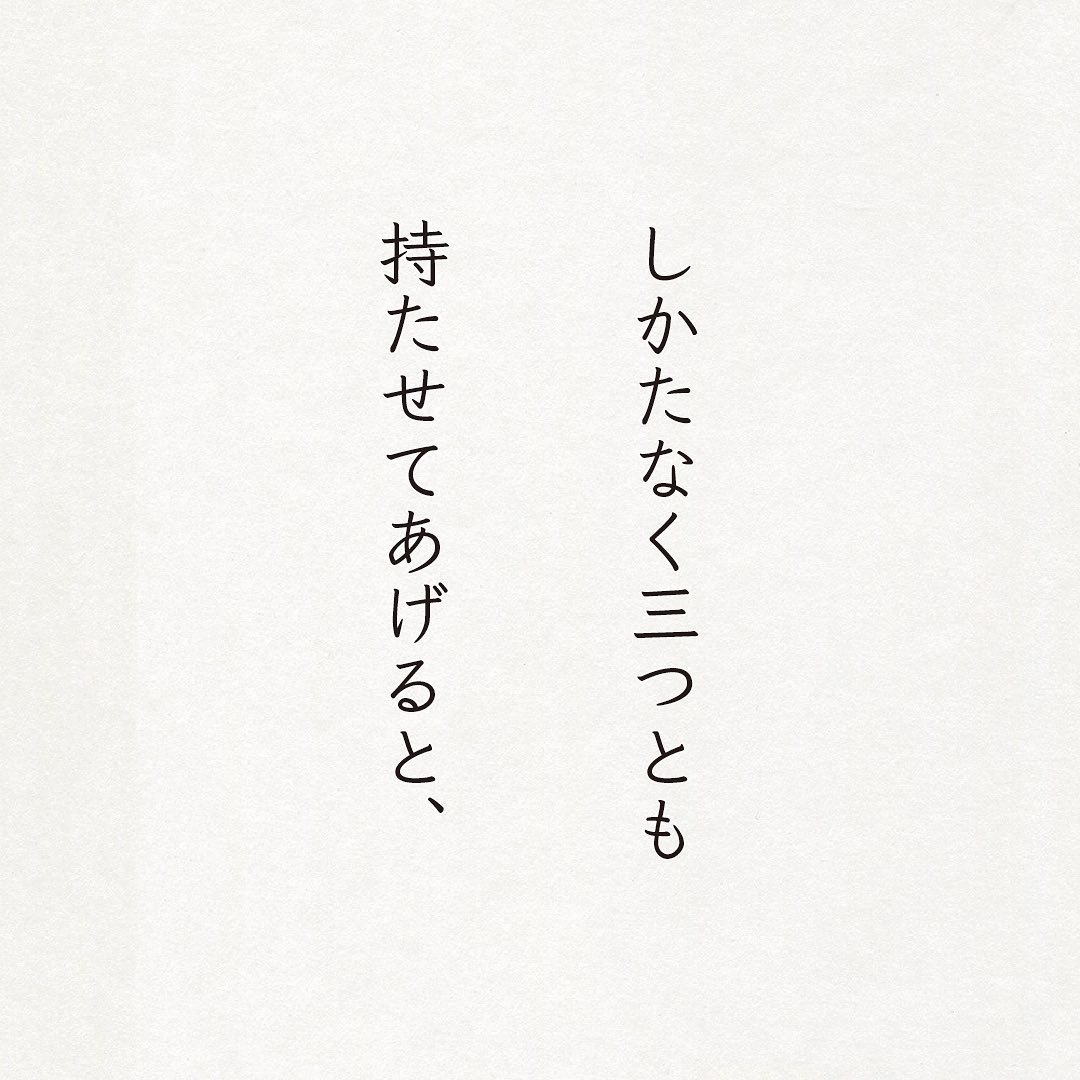 しかたなく三つとも
持たせてあげると、